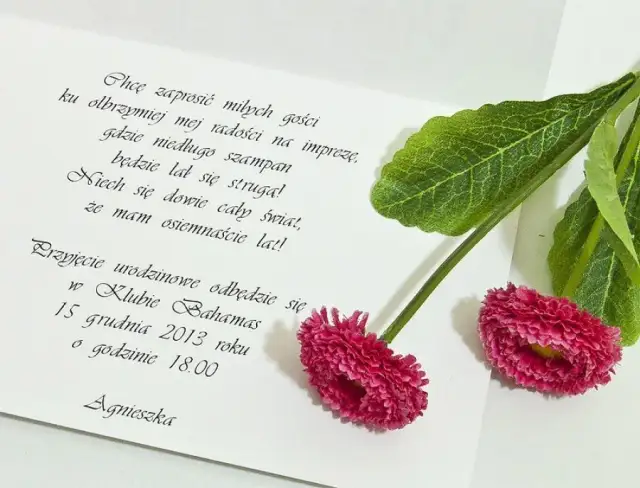 Chcę zaprosić miłych gości
ku olbrzymiej mej radości na imprezę,
gdzie niedługo szampan
będzie lał się strugą!
Niech się dowie cały świat,
że mam osiemnaście lat!
Przyjęcie urodzinowe odbędzie się
w Klubie Bahamas
15 grudnia 2013 roku
o godzinie 18.00
Agnieszka